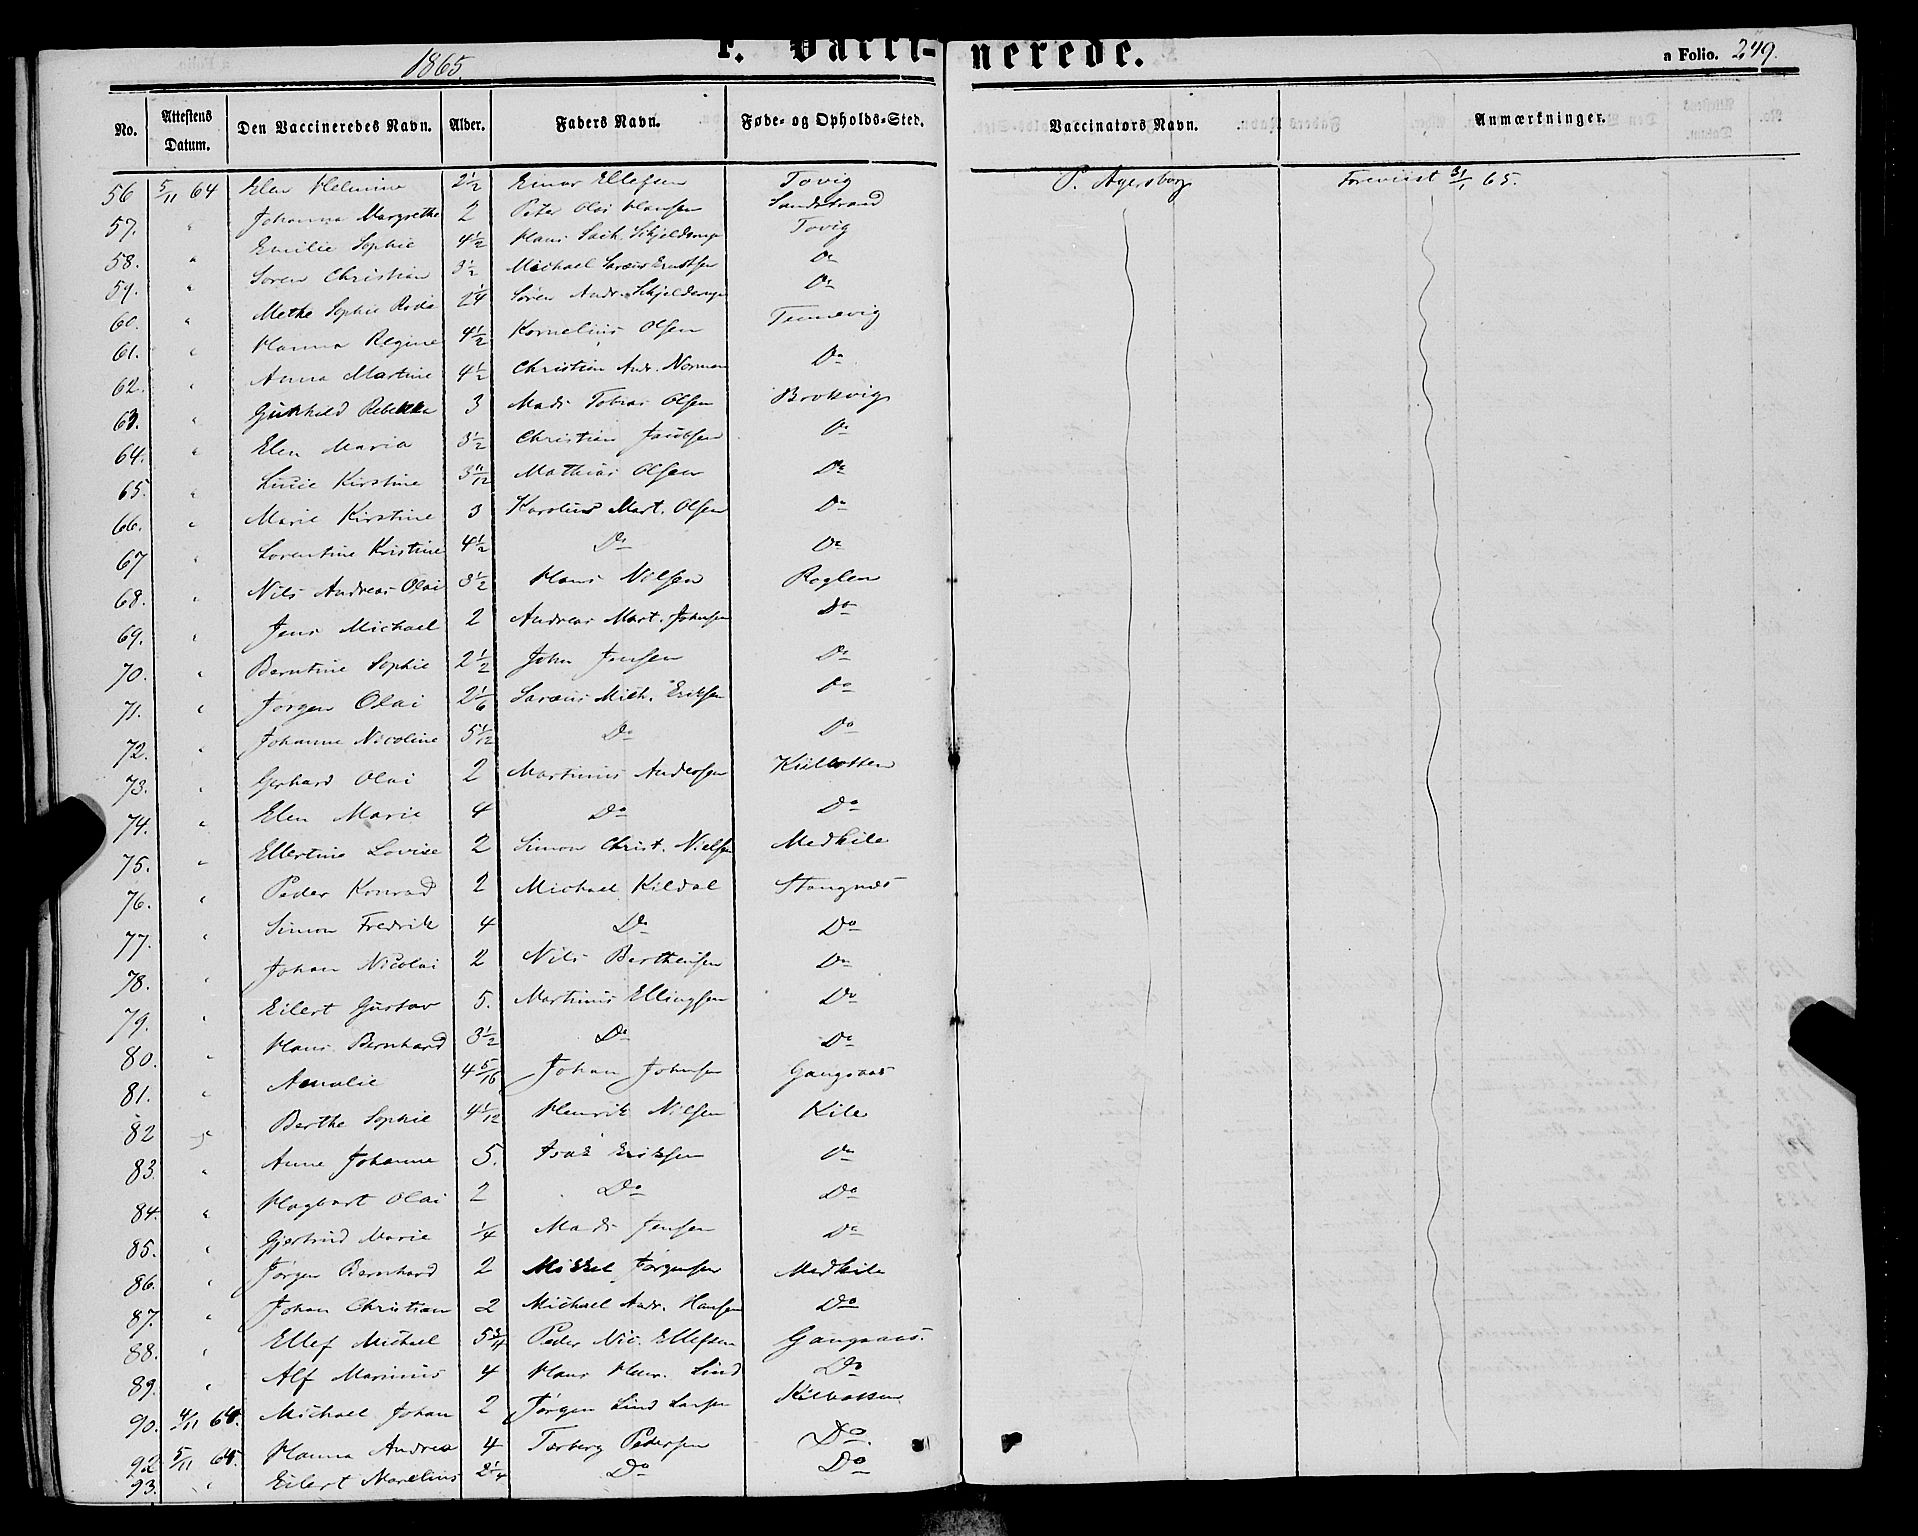 1865.
F. Vacci- nerede.
a Folio. 249.
No. Attestens Datum. Den Vaccineredes Navn. Alder. Faders Navn. Føde- og Opholds-Sted. Vaccinators Navn. Anmærkninger.
56 5/11 64 Elen Helmine 2 1/2 Einar Ellefsen Tovig P. Agersborg Foreviist 31/1 65.
57. " Johanna Margrethe 2 Peter Olai Hansen Sandstrand
58. " Emilie Sophie 4 1/2 Hans Zach. Skjeldsnge Tovig
59. " Soren Christian 3 1/2 Michael Saraus Erntsen Do
60. " Methe Sophie 2 1/4 Søren Andr. Skjeldsnge Do
61. " Hanna Regine 4 1/2 Kornelius Olsen Tennevig
62. " Anna Martine 4 1/2 Christian Andr. Norman Do
63. " Gunhild Rebekka 3 Mads Tobias Olsen Brokvig
64. " Elen Maria 3 1/2 Christian Jacobsen Do
65. " Lucie Kirstine 3 11/12 Mathias Olsen Do
66. " Marie Kirstine 3 Karolius Mart. Olsen Do
67 " Lorentine Kristine 4 1/2 Do Do
68. " Nils Andreas Olai 3 1/2 Hans Nilsen Roglen
69. " Jens Michael 2 Andreas Mart. Johnsen Do
70. " Berntine Sophie 2 1/2 John Jensen Do
71. " Jørgen Olai 2 1/6 Saraus Mich. Eriksen Do
72. " Johanne Nicoline 5 1/12 Do Do
73. " Gerhard Olai 2 Martinus Andersen Kilbotten
74. " Elen Marie 4 Do Do
75. " Ellertine Lovise 2 Simon Christ. Nielsen Medkile
76. " Peder Konrad 2 Michael Kildal Stangnes
77. " Simon Fredrik 4 Do Do
78. " Johan Nicolai 2 Nils Berthensen Do
79. " Eilert Gustav 5. Martinus Ellingsen Do
80. " Hans Bernhard 3 1/2 Do Do
81. " Amalie 4 5/16 Johan Johnsen Gangsaas
82 " Berthe Sophie 4 1/12 Henrik Nilsen Kile
83. " Anne Johanne 5. Isak Eriksen Do
84. " Hagbart Olai 2 Do Do
85. " Gjertrud Marie 1/4 Mads Jensen Do
86. " Jørgen Bernhard 2 Mikkel Jørgensen Medkile
87. " Johan Christian 2 Michael Andr. Hansen Do
88. " Ellef Michael 5 Peder Nic. Ellefsen Gangsaas.
89. " Alf Marinius 4 Hans Henr. Lind Do
90. 4/11 64. Michael Johan 2 Jørgen Lind Larsen Kilbotten
92 5/11 64. Hanna Andrea 4 Torberg Pedersen Do.
93. " Eilert Marelius 2 1/4 Do Do